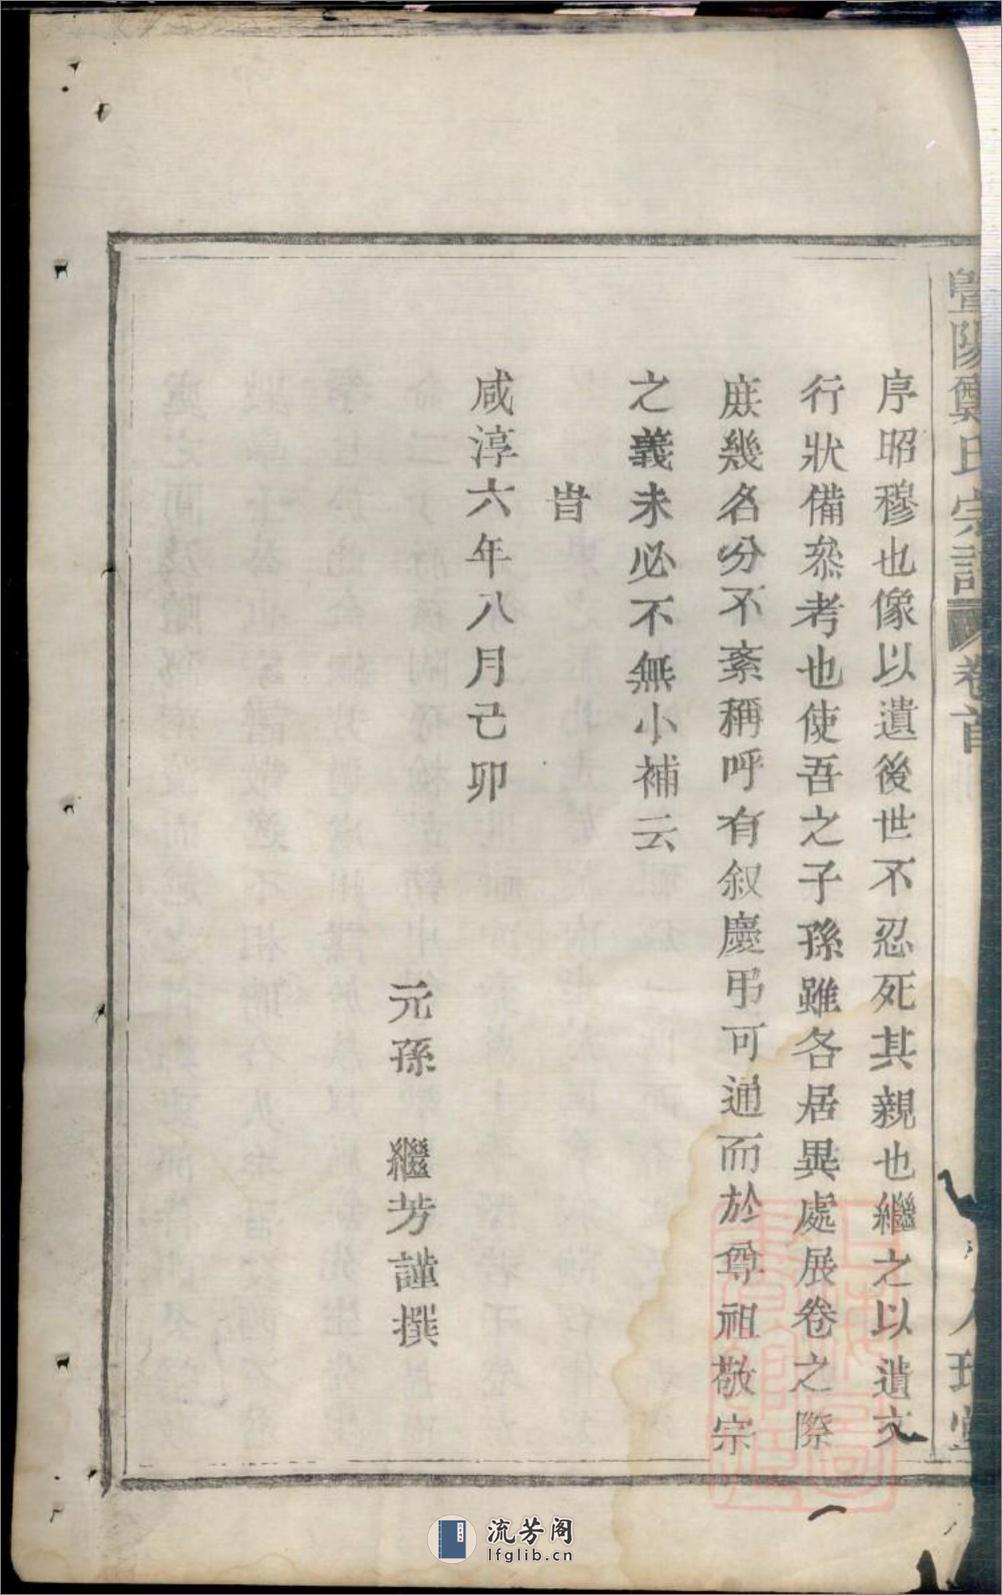 暨陽
氏宗譜
卷首
序昭穆也像以遺後世不忍死其親也繼之以遺文
行狀備叅考也使吾之子孫雖各居異處展卷之際
庶幾名分不紊稱呼有叙慶弔可通而於尊祖敬宗
之義未必不無小補云
旹
咸淳六年八月己卯
元孫 繼芳謹撰
流芳阁
lfglib.cn